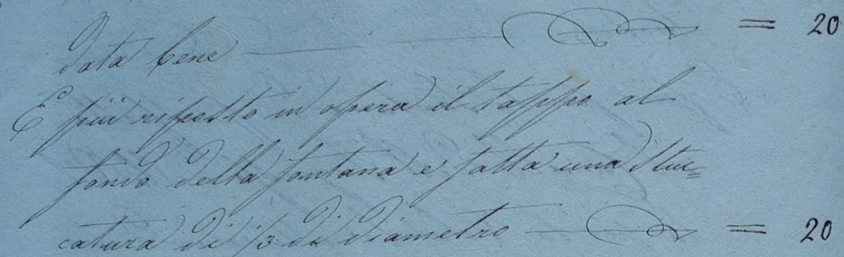 data bene = 20
E più rifletto in opera il tappo al
fondo della fontana e fatta una stuc=
catura di 1/3 di diametro = 20